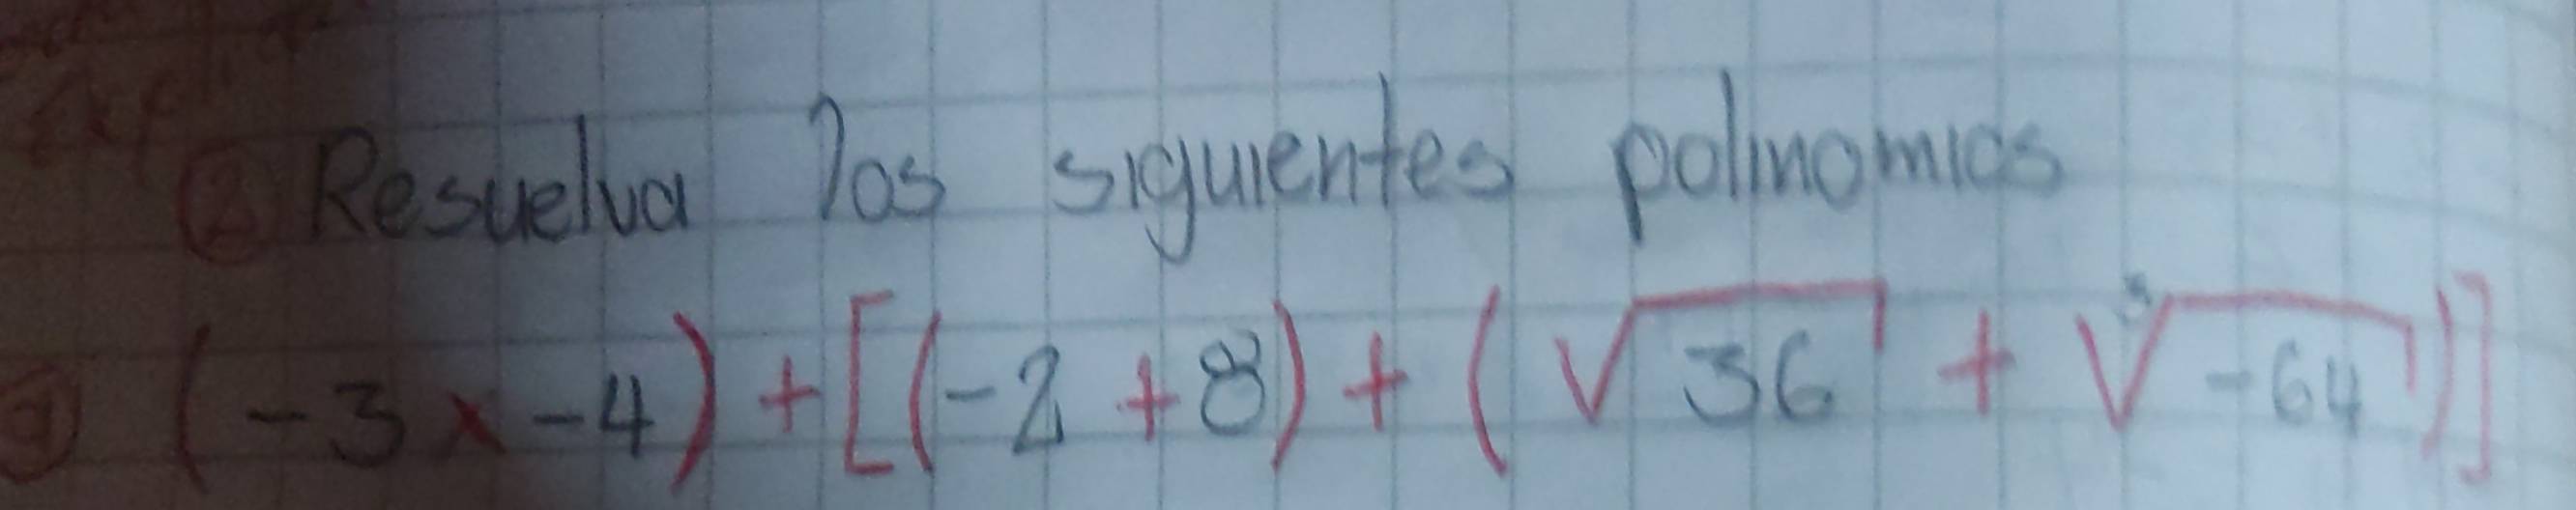 ② Resuelva los siguientes polinomios
(-3 x -4) + [(-2 + 8) + (√36 + ³√-64)]